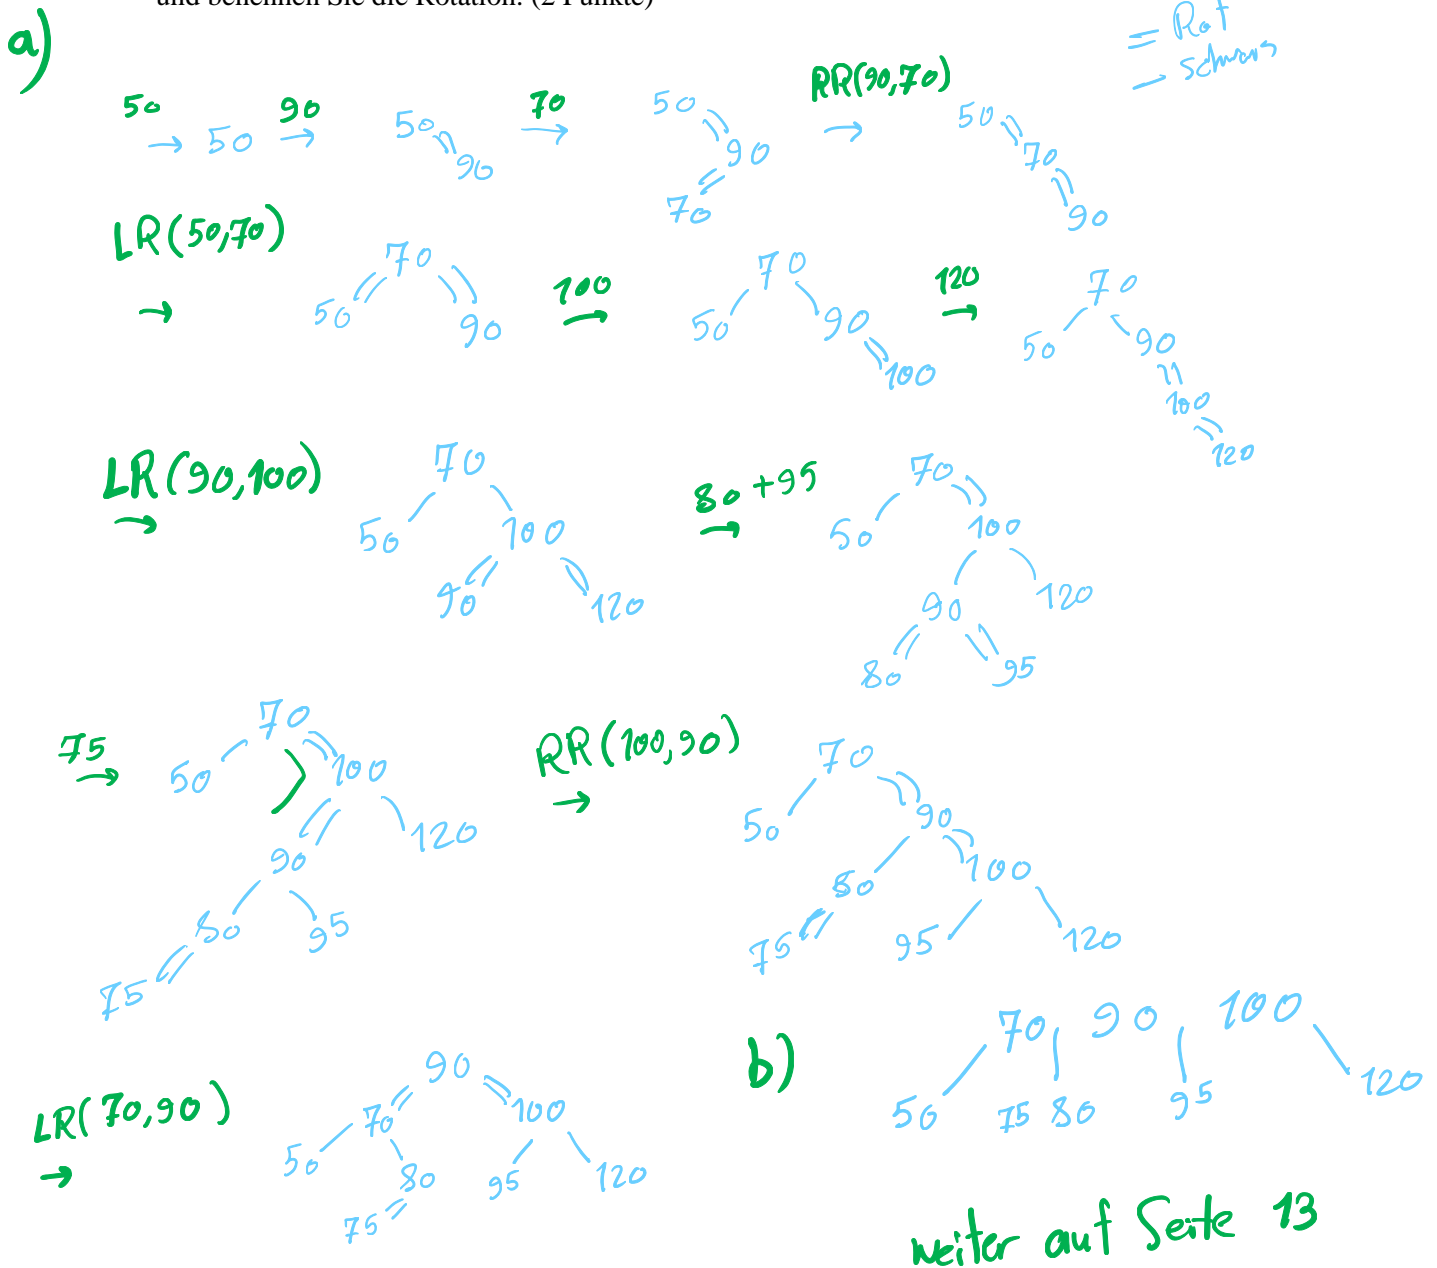 und benennen Sie die Rotation. (2 Punkte)
a)
= Rot
— schwarz
50 → 50 90 → 50 90 70 → 50 90 70 RR(90,70) → 50 70 90
LR(50,70) → 70 50 90 100 → 70 50 90 100 120 → 70 50 90 100 120
LR(90,100) → 70 50 100 90 120 80+95 → 70 50 100 90 120 80 95
75 → 70 50 100 90 120 80 95 75 RR(100,90) → 70 50 90 80 100 75 95 120
LR(70,90) → 90 70 100 50 80 95 120 75
b) 70 90 100
50 75 80 95 120
weiter auf Seite 13